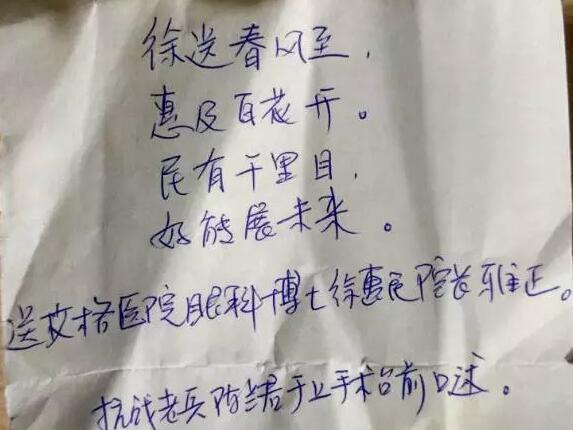 徐送春风至，
惠及百花开。
民有千里目，
好能展未来。
送艾格医院眼科博士徐惠民院长雅正。
抗战老兵陈喾于上手术台前口述。